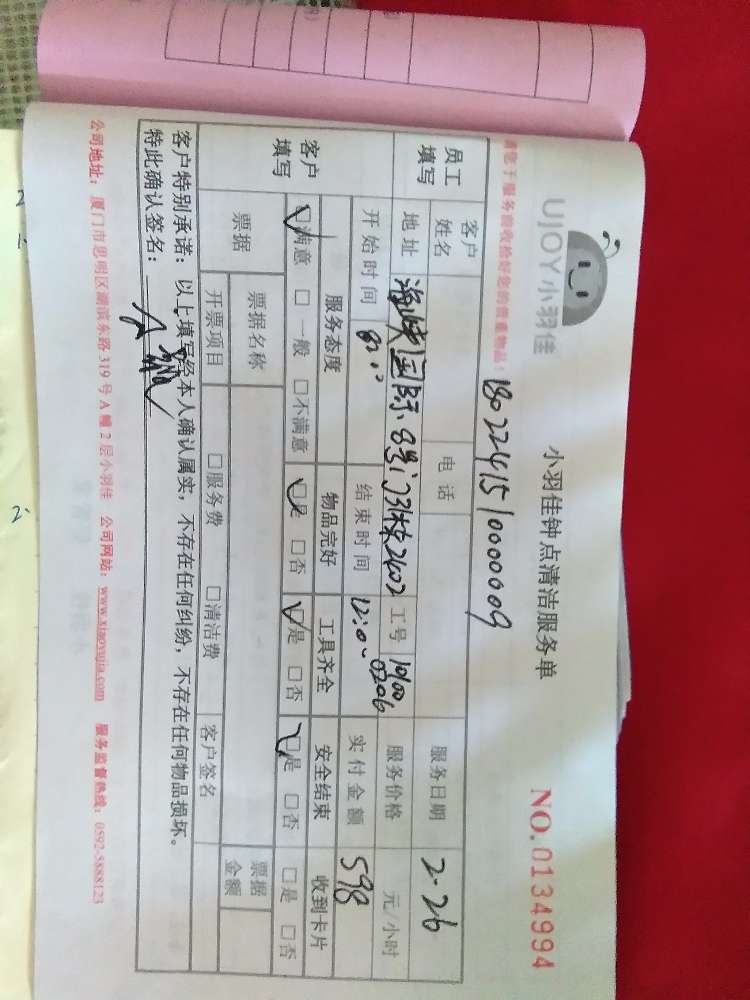 UJOY小羽佳
小羽佳钟点清洁服务单
NO.0134994
请您于服务前收拾好您的贵重物品!
180224151000009
员工填写
客户姓名
电话
服务日期 2-26
地址 海峡国际8号门3栋2402
工号 10100 0206
服务价格 元/小时
开始时间
结束时间
实付金额 598
客户填写
服务态度 物品完好 工具齐全 安全结束 收到卡片
□满意 □一般 □不满意 □是 □否 □是 □否 □是 □否 □是 □否
票据
票据名称
票据金额
开票项目 □服务费 □清洁费 客户签名
客户特别承诺:以上填写经本人确认属实,不存在任何纠纷,不存在任何物品损坏。
特此确认签名:
公司地址:厦门市思明区湖滨东路319号A幢2层小羽佳 公司网站:www.xiaoyujia.com 服务监督热线:0592-5888123